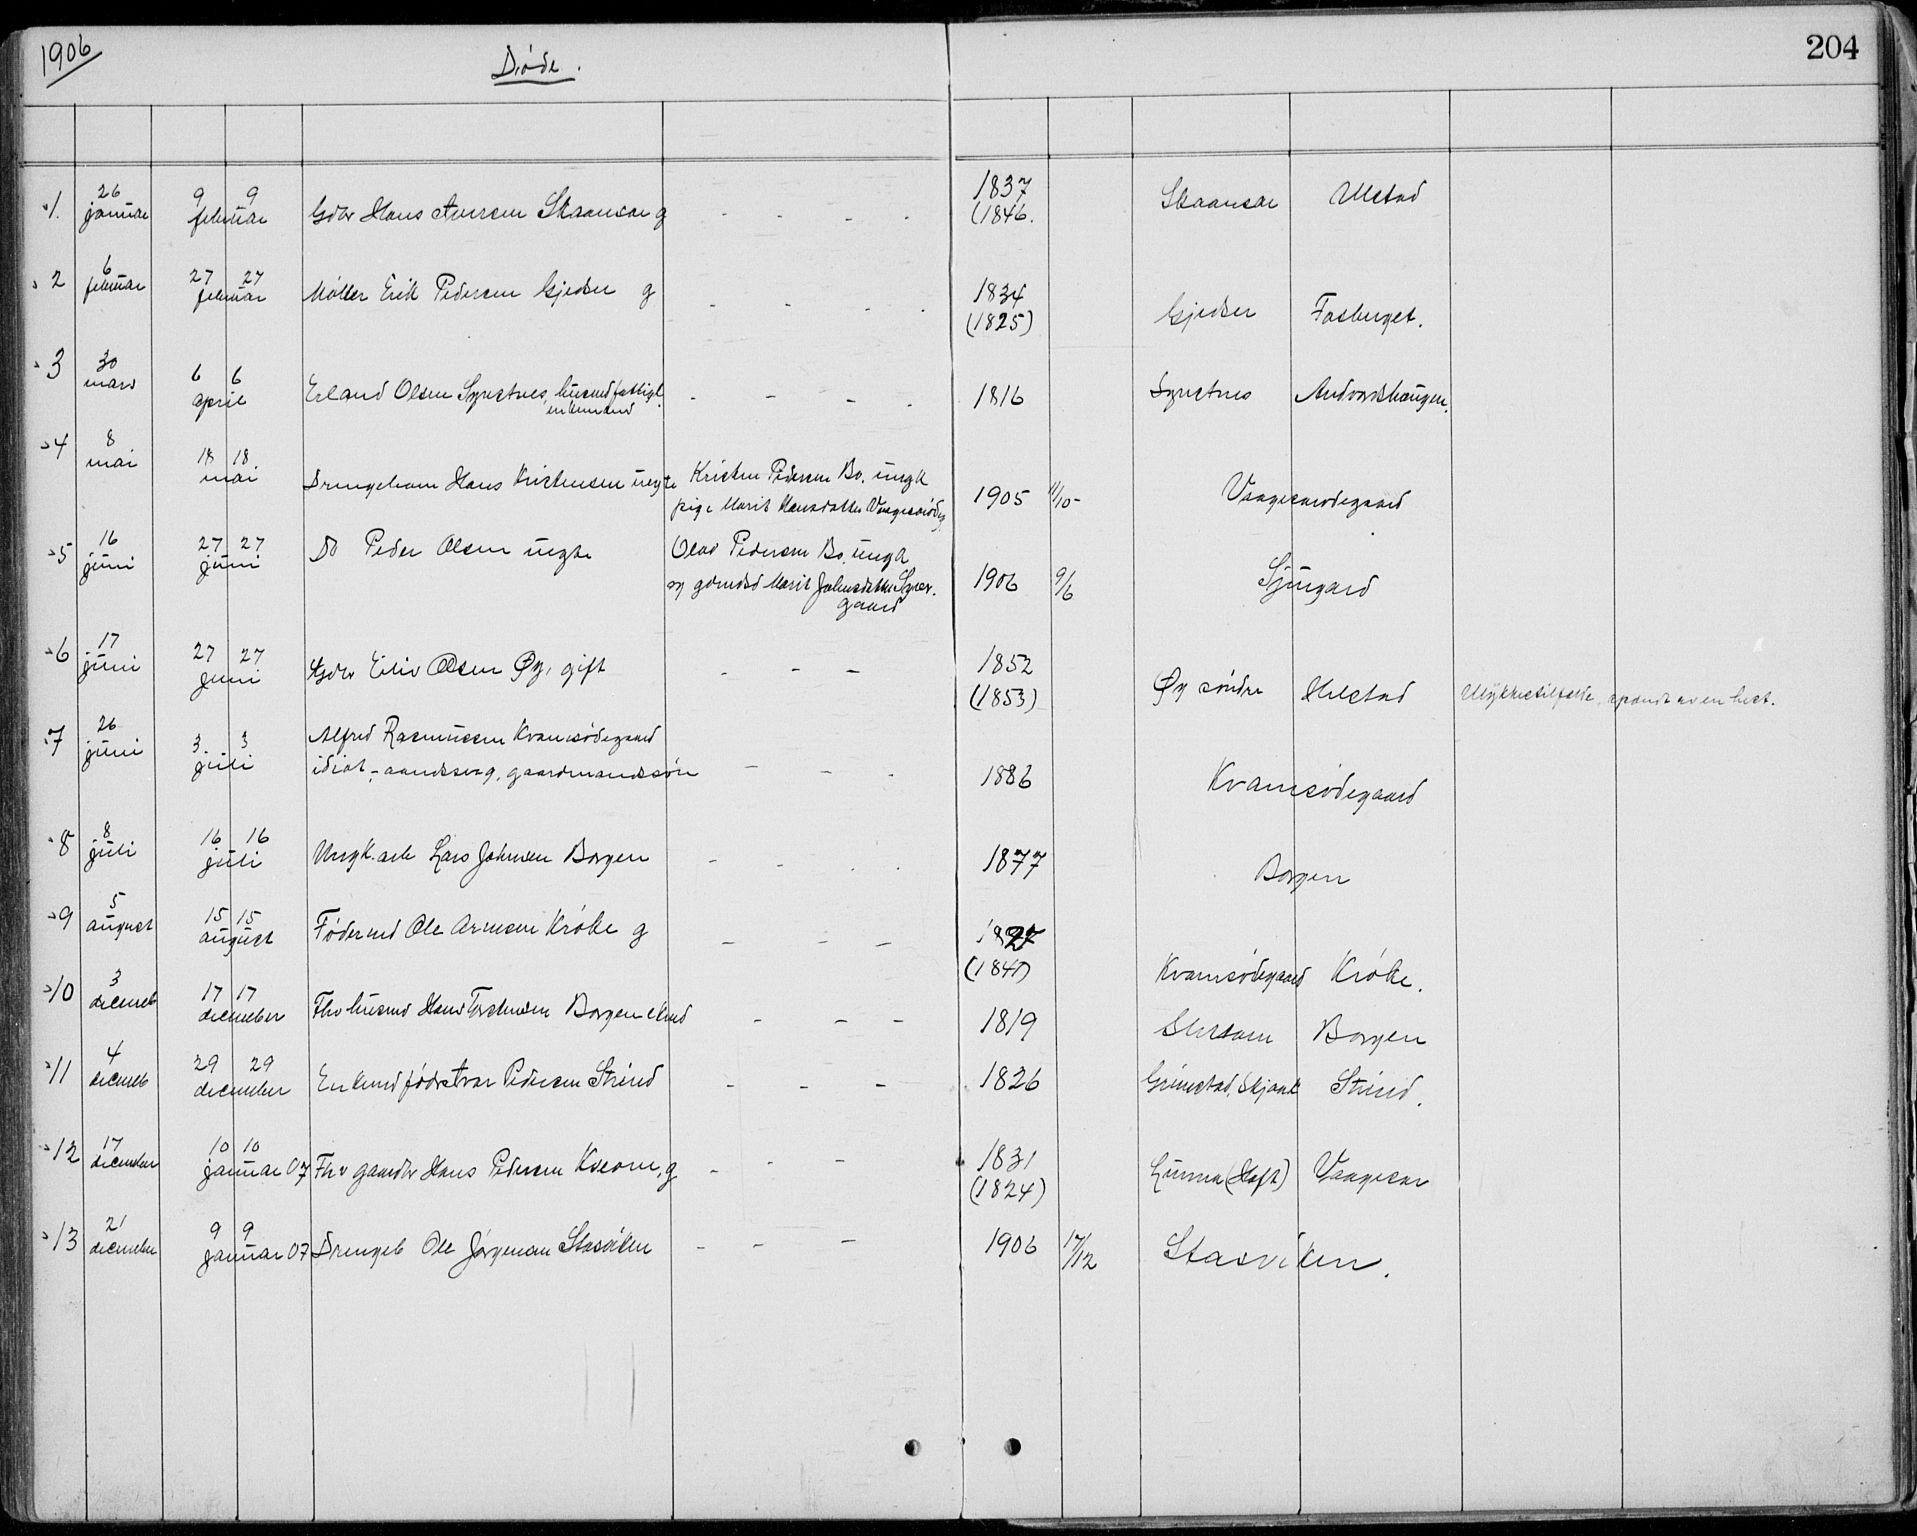 1906
Døde.
204
1. 26 januar 9 9 februar Gdbr Hans Iversen Skaansar g - - - - 1837 (1846. Skaansar Ulstad
2 6 februar 27 27 februar Møller Erik Pedersen Gjedser g - - - - 1834 (1825) Gjedser Fosberget.
3 30 mars 6 6 april Erland Olsen Synstnes, husmd fattigl. enkemand - - - - 1816 Synstnes Andvordshaugen.
4 8 mai 18 18 mai Drengebarn Hans Kristensen uegte Kristen Pedersen Bo. ungk pige Marit Hansdatter 1905 11/10 -
5 16 juni 27 27 juni Do Peder Olsen uegte Olav Pedersen Bo, ungk og gdmdsd Marit Johnsdatter gaard 1906 9/6 Sjurgard
6 17 juni 27 27 juni Gdbr Eiliv Olsen Øy, gift - - - 1852 (1853) Øy søndre Ulykkestilfælde, spændt av en hest.
7 26 juni 3 3 juli Alfred Rasmussen Kvamsødegaard
idiot, - aandssvag, gaardmandssøn - - - 1886 Kvamsødegaard
8 8 juli 16 16 juli Ungk. arb Lars Johnsen Borgen - - - - 1877 Borgen
9 5 august 15 15 august Fødermd Ole Arnesen Krøke g - - - 1827 (1841) Kvamsødegaard Krøke.
10 3 decemb 17 17 december Fhv husmd Hans Torstensen Borgen - - - 1819 Borgen
11 4 decemb 29 29 december Enkemd fødr Ivar Pedersen Strind - - - 1826 Grimstad, Skjaak Strind.
12 17 december 10 10 januar 07 Fhv gaardbr Hans Pedersen g - - - 1831 (1824) Vaagesar
13 21 december 9 9 januar 07 Drengeb Ole Jørgensen Stasviken - - - 1906 17/12 Stasviken.